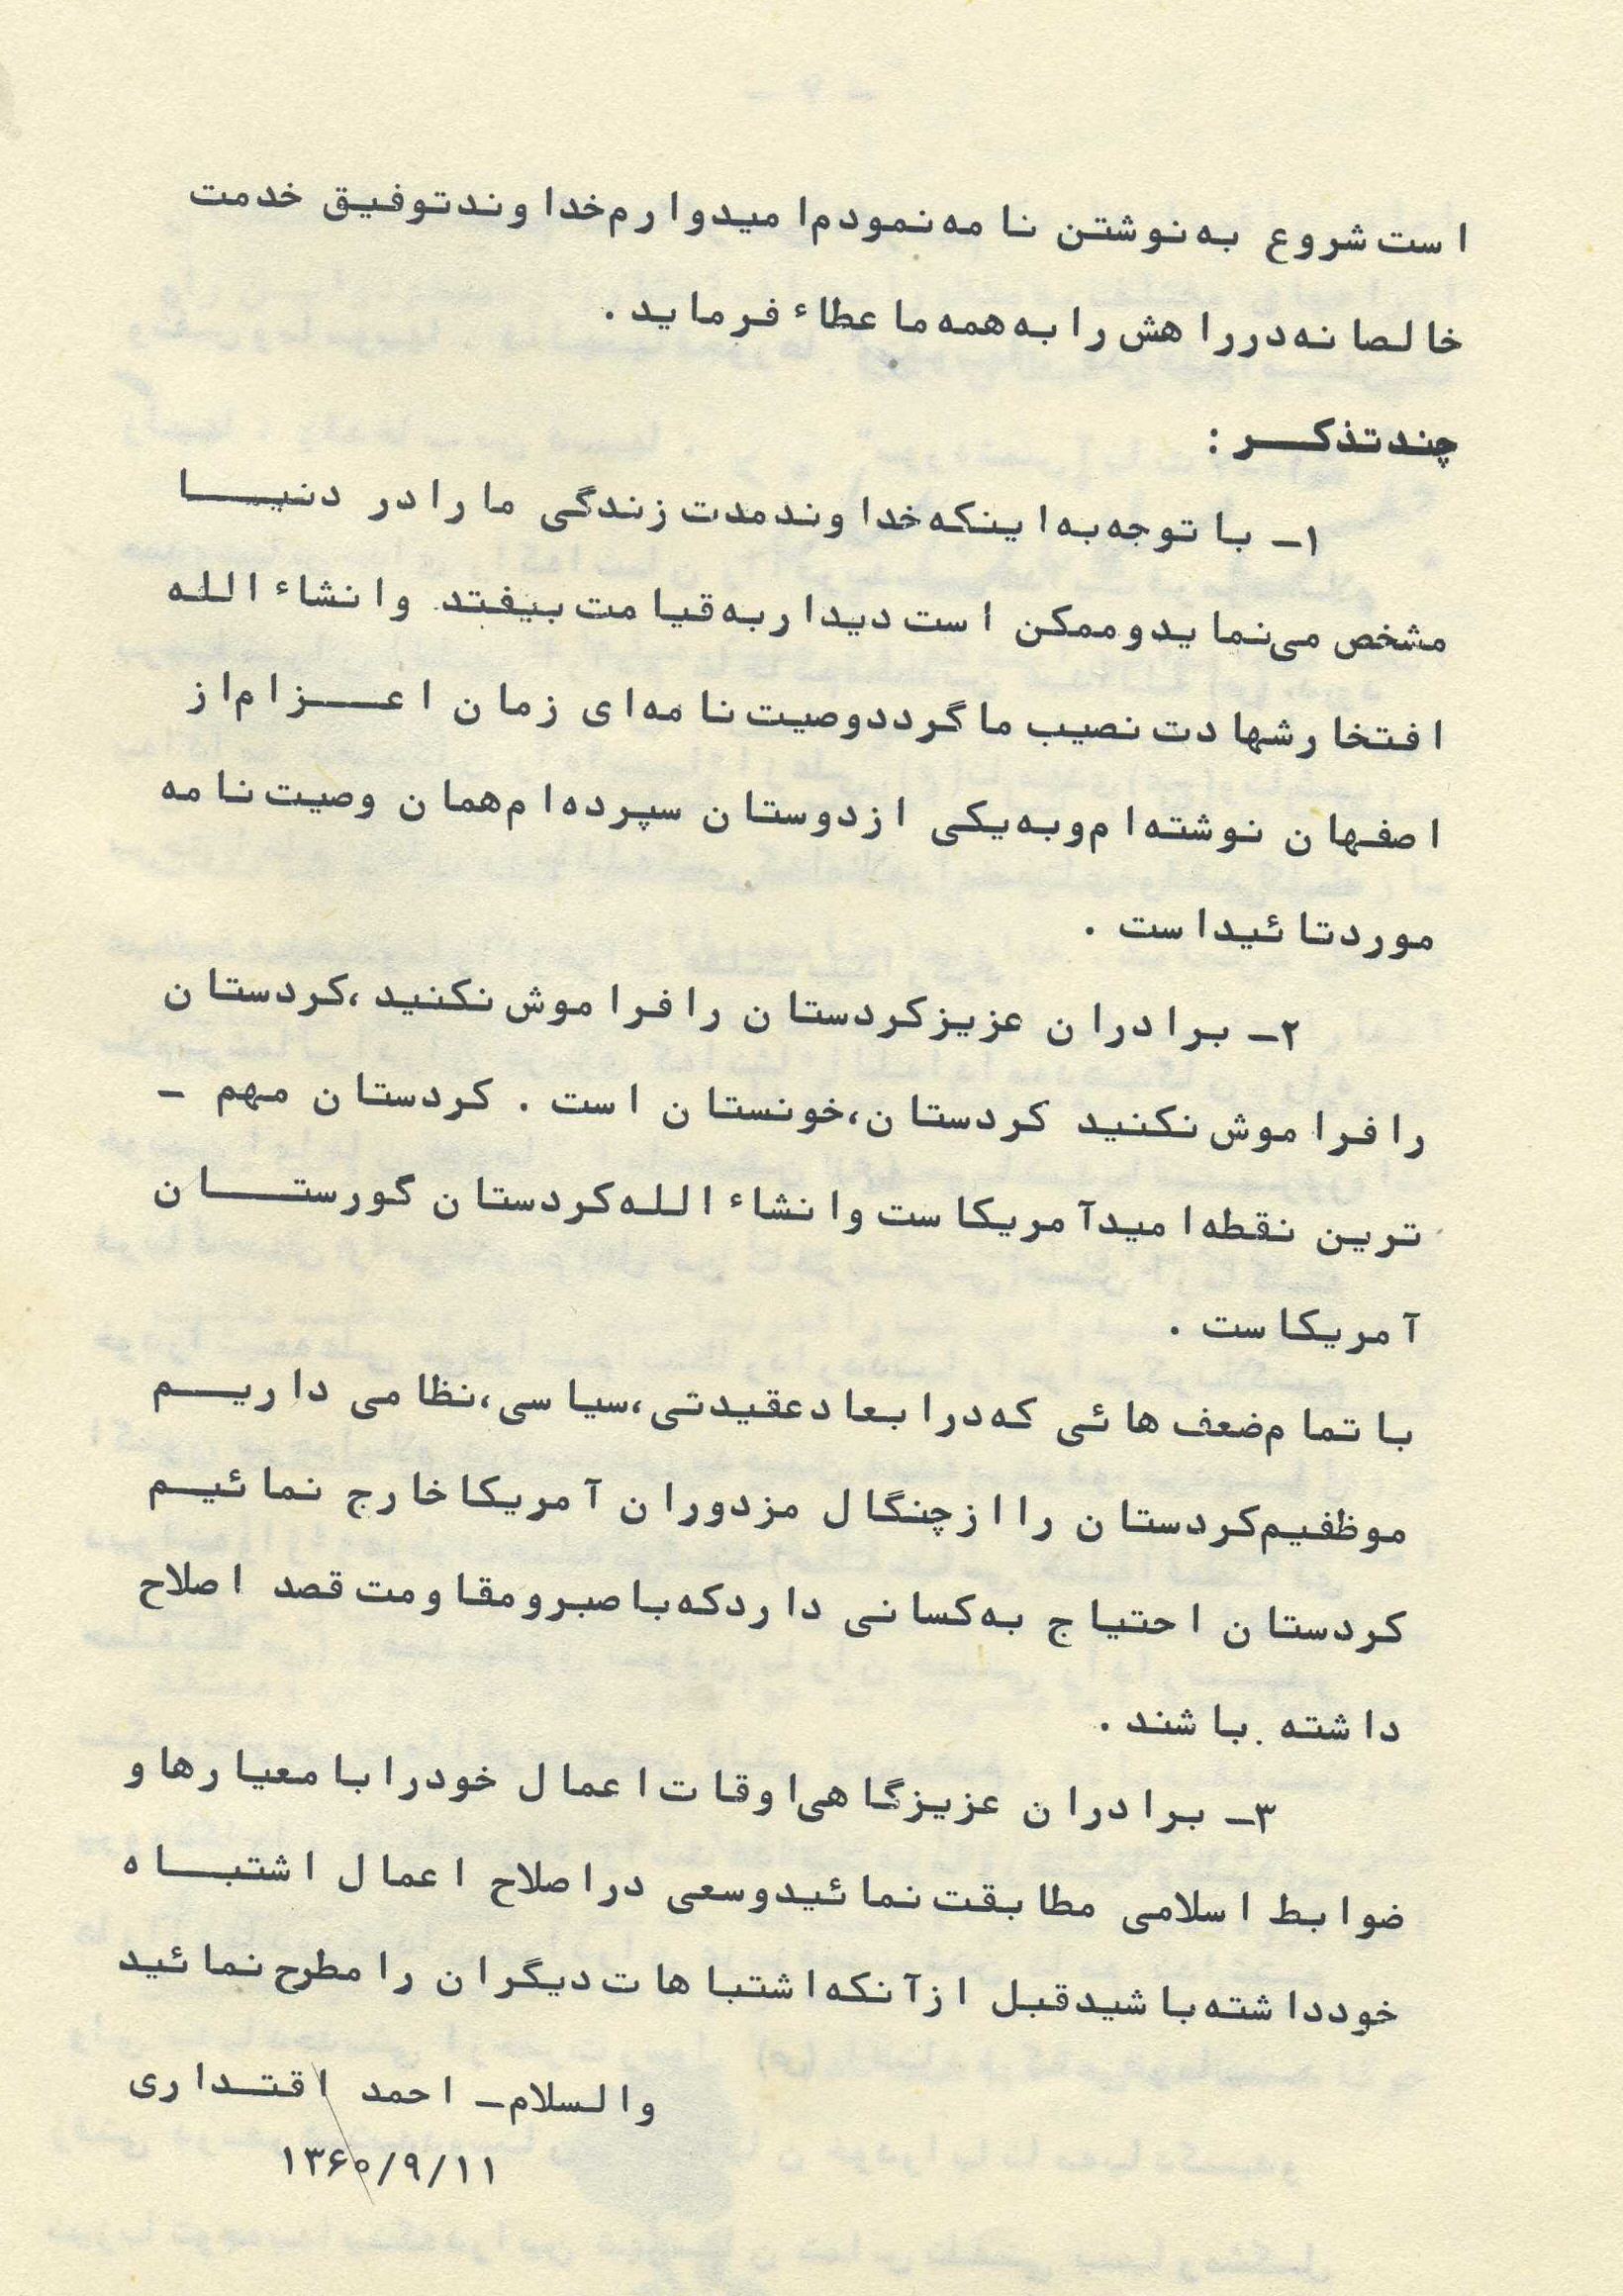 است شروع به نوشتن نامه نمودم امیدوارم خداوند توفیق خدمت
خالصانه در راهش را به همه ما عطاء فرماید .
چند تذکر :
۱ـ با توجه به اینکه خداوند مدت زندگی ما را در دنیا
مشخص می‌نماید و ممکن است دیدار به قیامت بیفتد وانشاء الله
افتخار شهادت نصیب ما گردد وصیت نامه‌ای زمان اعزام از
اصفهان نوشته‌ام و به یکی از دوستان سپرده‌ام همان وصیت نامه
مورد تائید است .
۲ـ برادران عزیز کردستان را فراموش نکنید ، کردستان
را فراموش نکنید کردستان ، خونستان است . کردستان مهم ـ
ترین نقطه امید آمریکاست وانشاء الله کردستان گورستان
آمریکاست .
با تمام ضعف هائی که در ابعاد عقیدتی ، سیاسی ، نظامی داریم
موظفیم کردستان را از چنگال مزدوران آمریکا خارج نمائیم
کردستان احتیاج به کسانی دارد که با صبر و مقاومت قصد اصلاح
داشته باشند .
۳ـ برادران عزیز گاهی اوقات اعمال خود را با معیارها و
ضوابط اسلامی مطابقت نمائید و سعی در اصلاح اعمال اشتباه
خود داشته باشید قبل از آنکه اشتباهات دیگران را مطرح نمائید
والسلام ـ احمد اقتداری
۱۳۶۰/۹/۱۱